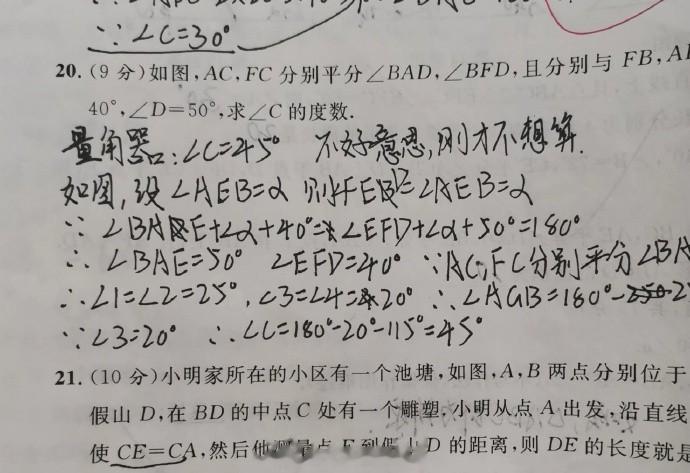 ∴∠C=30°
20. (9 分)如图,AC,FC 分别平分∠BAD,∠BFD,且分别与 FB,A
40°,∠D=50°,求∠C 的度数.
量角器:∠C=45° 不好意思,刚才不想算.
如图,设∠AEB=α 则∠FED=∠AEB=α
∵∠BAE+∠α+40°=∠EFD+∠α+50°=180°
∴∠BAE=50° ∠EFD=40° ∵AC,FC分别平分∠BA
∴∠1=∠2=25°,∠3=∠4=20° ∴∠AGB=180°-
∵∠3=20° ∴∠C=180°-20°-115°=45°
21. (10 分)小明家所在的小区有一个池塘,如图,A,B 两点分别位于
假山 D,在 BD 的中点 C 处有一个雕塑,小明从点 A 出发,沿直线
使 CE=CA,然后他测量点 E 到假山 D 的距离,则 DE 的长度就是